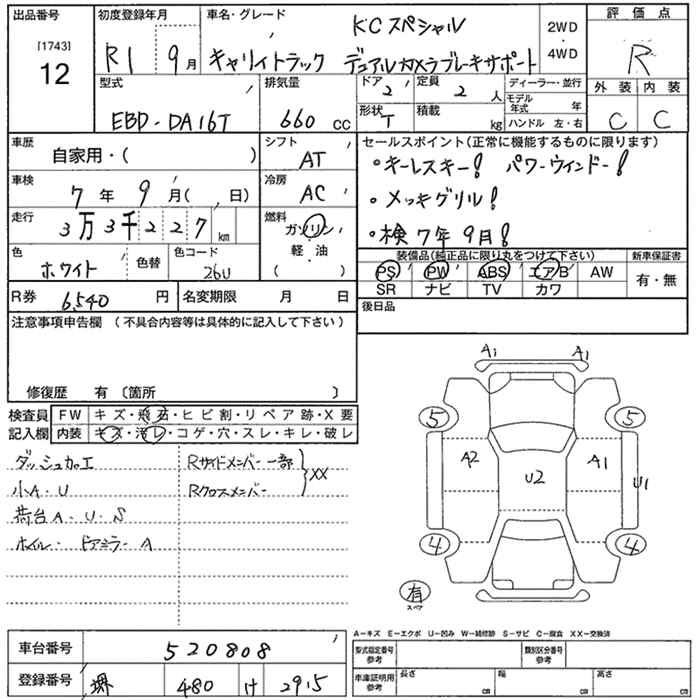 出品番号 初度登録年月 車名・グレード KCスペシャル 2WD 評価点
[1743] 12 R1 9月 キャリイトラック デュアルカメラブレーキサポート 4WD R
型式 排気量 ドア 2 定員 2人 ディーラー・並行 外装 内装
EBD-DA16T 660cc 形状 T 積載 kg モデル年式 年 C C
ハンドル 左・右
車歴 自家用・( ) シフト AT セールスポイント(正常に機能するものに限ります)
・キーレスキー! パワーウィンドー!
車検 7年9月( 日) 冷房 AC ・メッキグリル!
走行 3万3千227km 燃料 ガソリン ・検7年9月!
軽油
( )
色 ホワイト 色替 色コード 26U
装備品(純正品に限り丸をつけて下さい) 新車保証書
PS PW ABS エアB AW 有・無
SR ナビ TV カワ
R券 6,540円 名変期限 月 日 後日品
注意事項申告欄(不具合内容等は具体的に記入して下さい)
修復歴 有〔箇所 〕
検査員 FW キズ・飛石・ヒビ割・リペア跡・X要
記入欄 内装 キズ・汚レ・コゲ・穴・スレ・キレ・破レ
ダッシュカエ Rサイドメンバー一部
XX
小A.U Rクロスメンバー
荷台A.U.S
ホイル・ドアミラーA
A1 A1
5 5
A2 U2 A1 U1
4 4
有
スペア
A1 A1
A－キズ E－エクボ U－凹み W－補修跡 S－サビ C－腐食 XX－交換済
車台番号 520808 型式指定番号 参考 類別区分番号 参考
登録番号 堺 480 け 2915 車庫証明用 参考 長さ cm 幅 cm 高さ cm